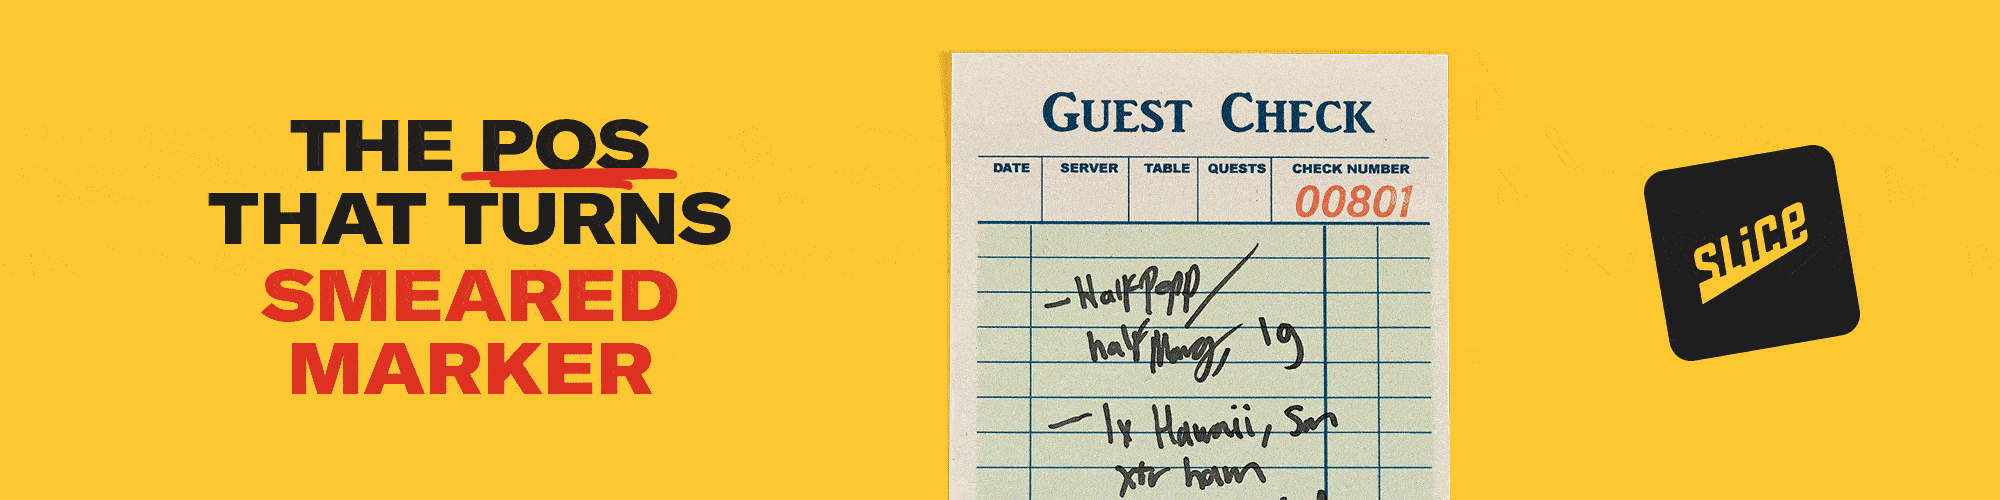 THE POS
THAT TURNS
SMEARED
MARKER
GUEST CHECK
DATE SERVER TABLE QUESTS CHECK NUMBER
00801
- Half Pepp/
half Marg, 1g
- 1x Hawaii, Sm
xtr ham
SLiCE